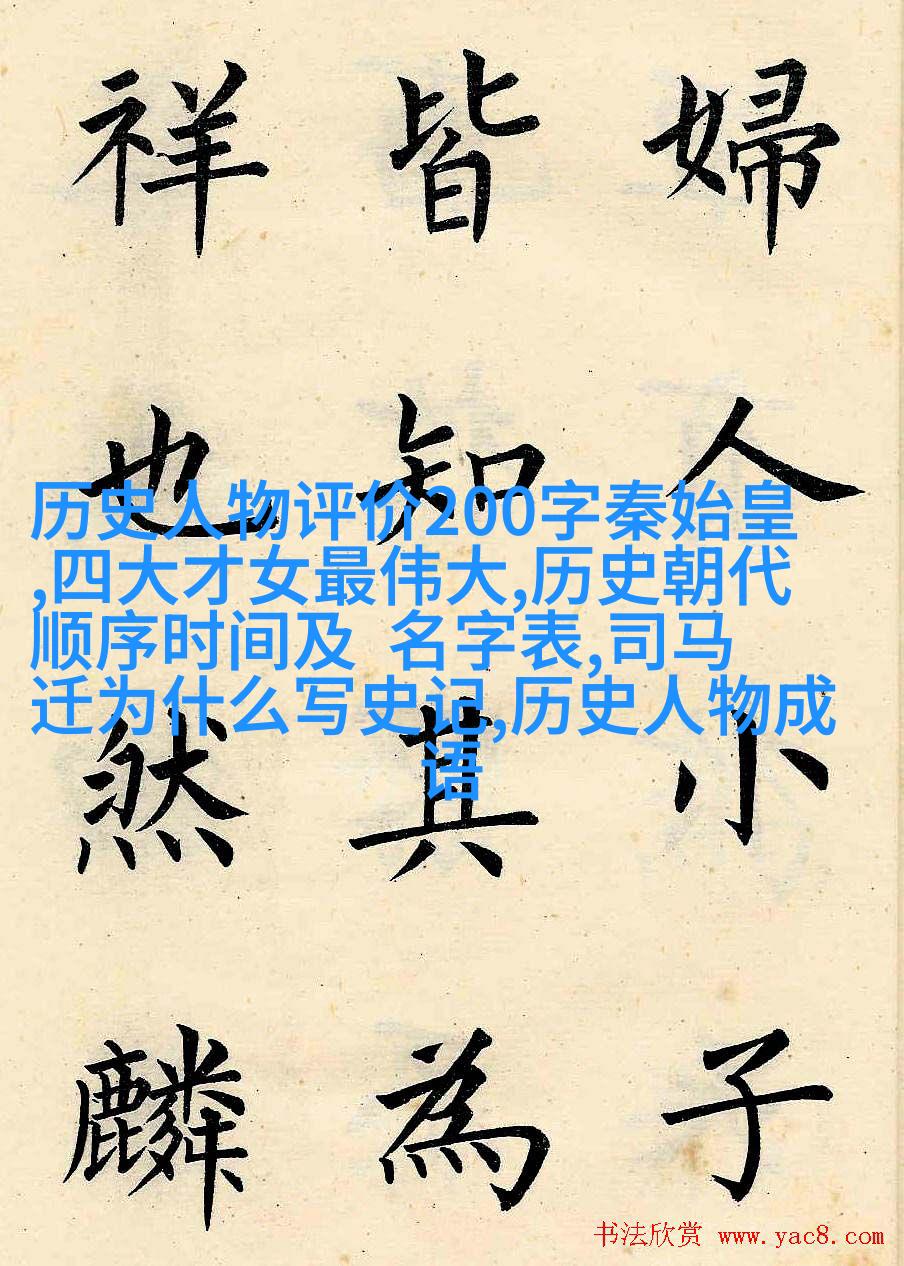 婦人小子
皆知其為
祥也然麟
历史人物评价200字秦始皇
,四大才女最伟大,历史朝代
顺序时间及 名字表,司马
迁为什么写史记,历史人物成
语
书法欣赏 www.yac8.com